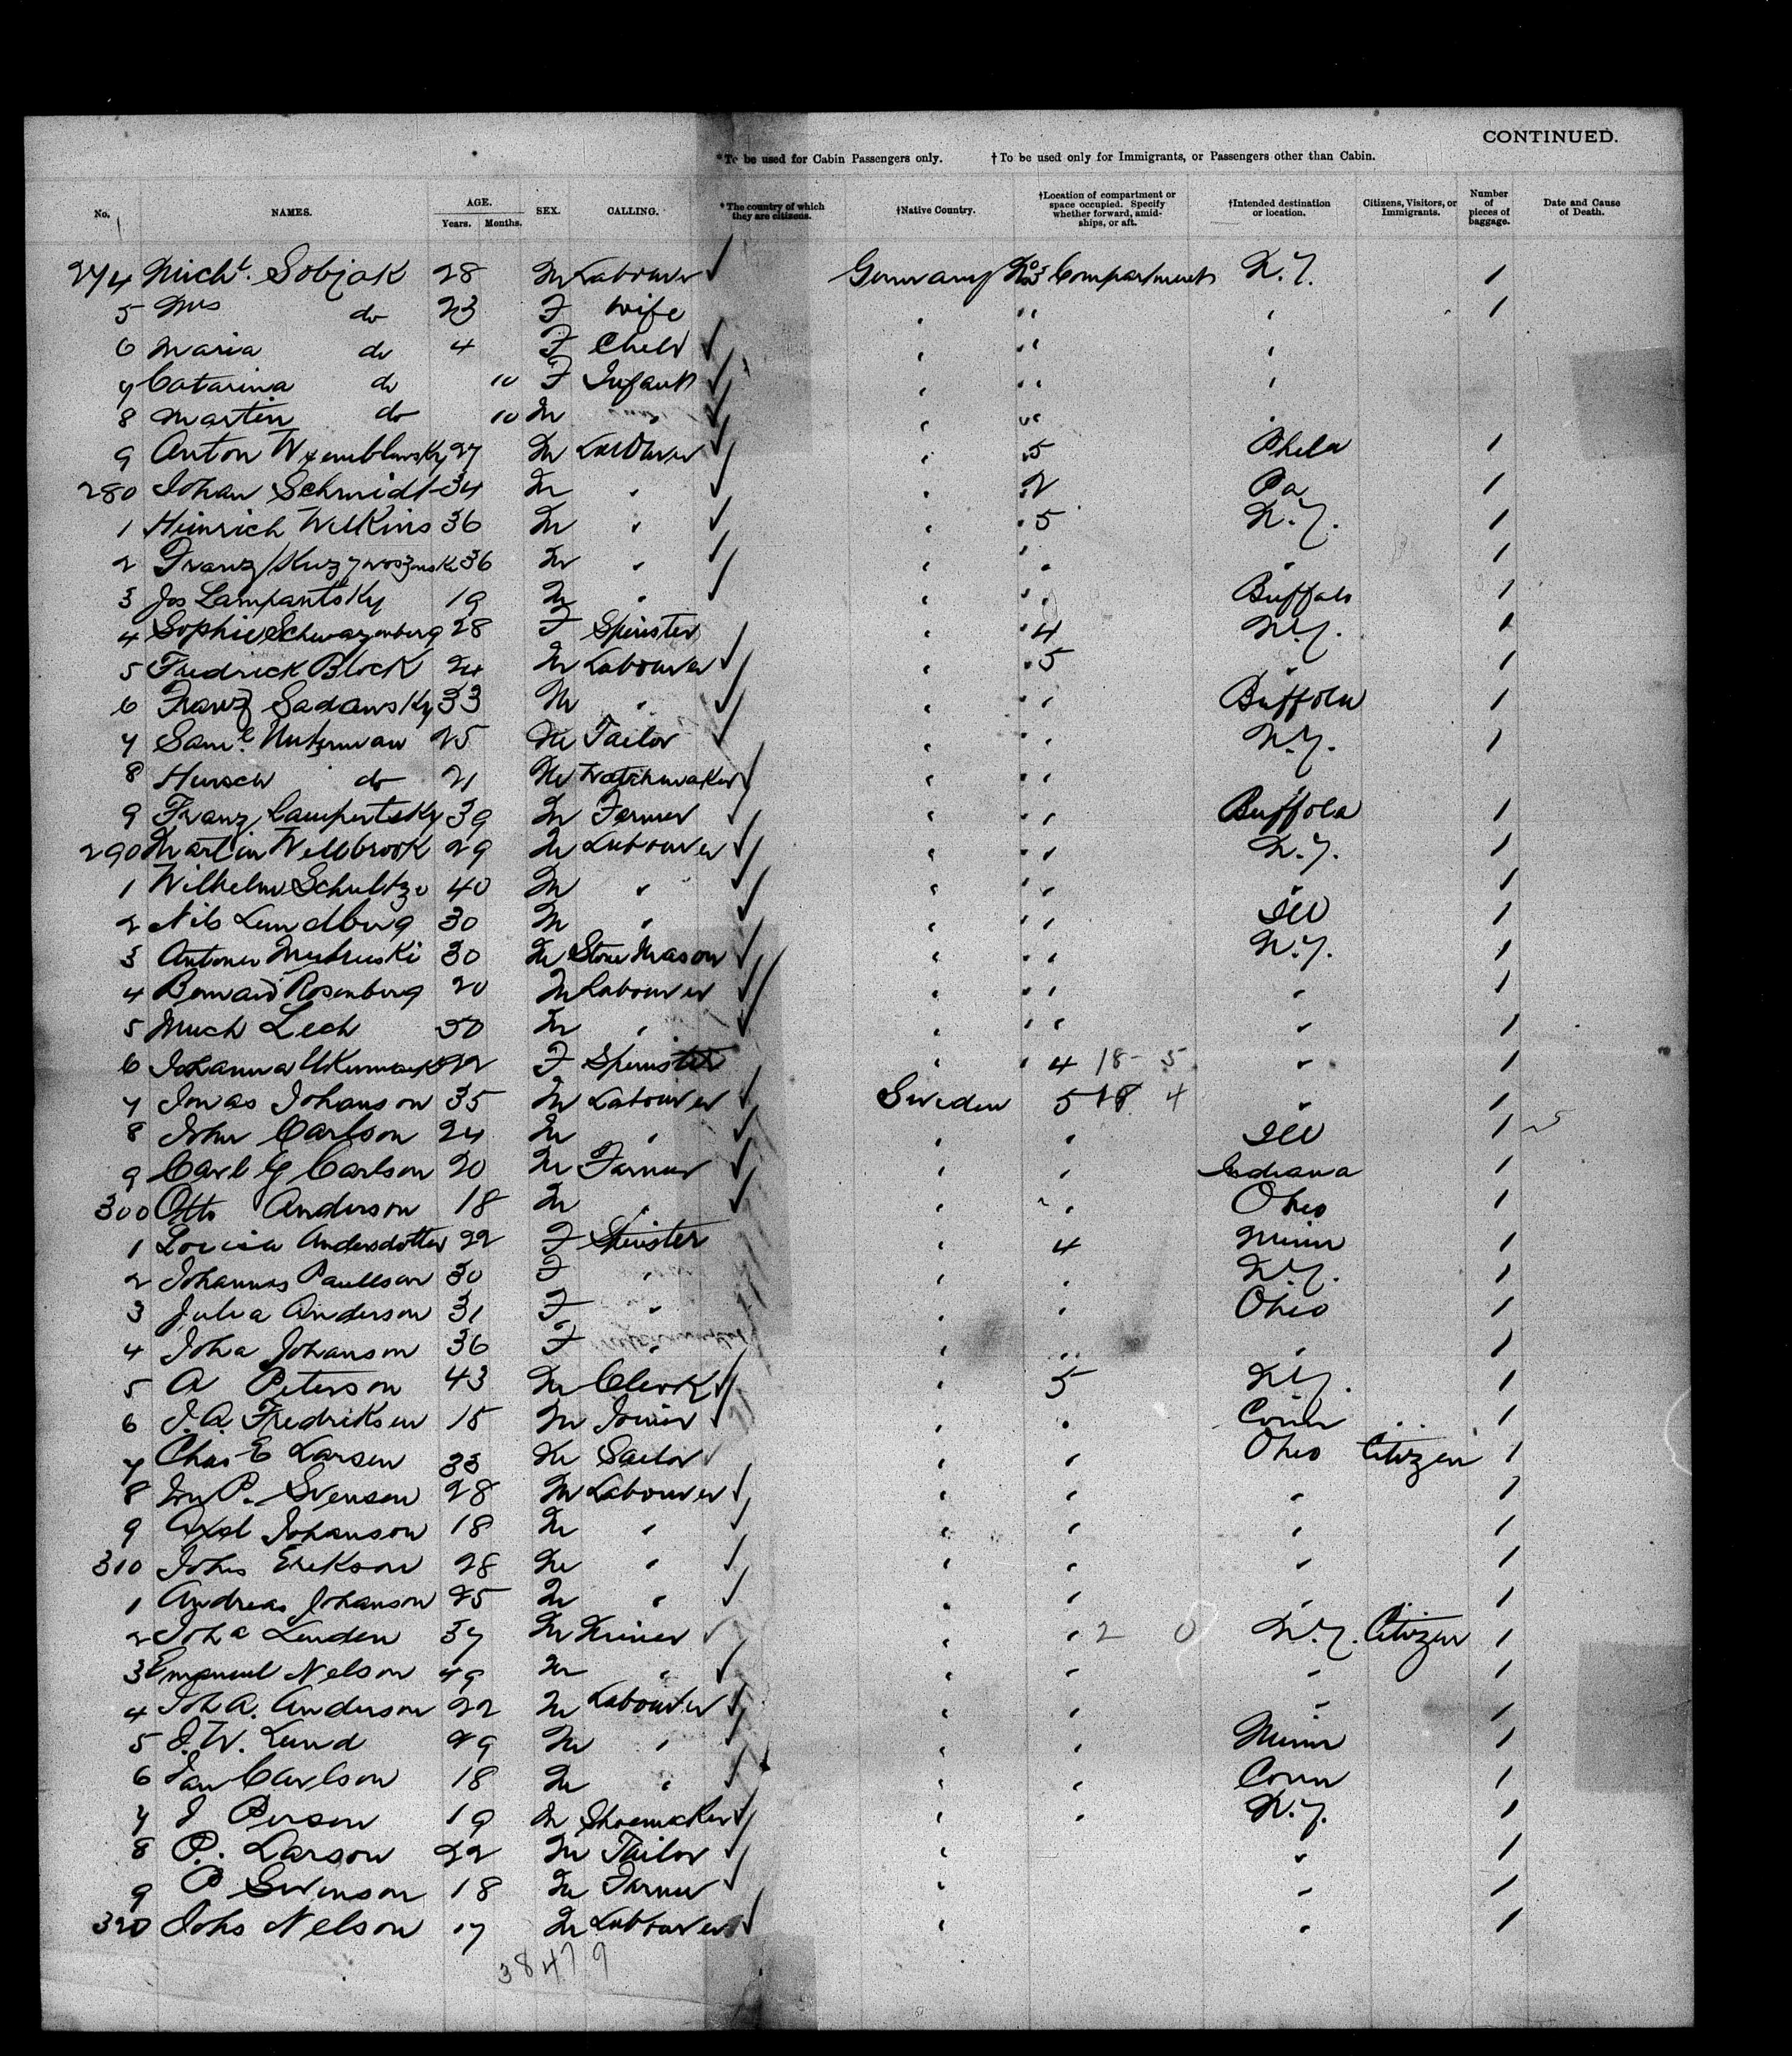 CONTINUED.
*To be used for Cabin Passengers only. †To be used only for Immigrants, or Passengers other than Cabin.
No. NAMES. AGE. Years. Months. SEX. CALLING. *The country of which they are citizens. †Native Country. †Location of compartment or space occupied. Specify whether forward, amidships, or aft. †Intended destination or location. Citizens, Visitors, or Immigrants. Number of pieces of baggage. Date and Cause of Death.
274 Michl. Sobjak 28 M Labourer ✓ Germany No 5 Compartment N.Y. 1
5 Mrs do 23 F Wife " " 1
6 Maria do 4 F Child ✓ " "
7 Catarina do 10 F Infant ✓ " "
8 Martin do 10 M " ✓ " "
9 Anton 27 M Labourer ✓ " 5 Phila 1
280 Johan Schmidt 34 M " ✓ " 2 Pa 1
1 Heinrich Welkins 36 M " ✓ " 5 N.Y. 1
2 Franz 36 M " ✓ " " " 1
3 Jos Lampantsky 19 M " ✓ " " Buffalo 1
4 Sophie Schwazenberg 28 F Spinster " 4 N.Y. 1
5 Fredrick Block 24 M Labourer ✓ " 5 " 1
6 Franz Sadawsky 33 M " ✓ " " Buffola 1
7 Saml. 25 M Tailor ✓ " " N.Y. 1
8 Hersch do 21 M Watchmaker ✓ " " "
9 Franz Lampertsky 39 M Farmer ✓ " " Buffola 1
290 Martin Wellbrook 29 M Labourer ✓ " " N.Y. 1
1 Wilhelm Schultze 40 M " ✓ " " " 1
2 Nils Lundberg 30 M " ✓ " " Ill 1
3 30 M Stone Mason ✓ " " N.Y. 1
4 Bernard Rosenberg 20 M Labourer ✓ " " " 1
5 Mich Lech 50 M " ✓ " " " 1
6 Johanna 22 F Spinster " 4 18- 5 " 1
7 Jonas Johanson 35 M Labourer ✓ Sweden 5 18 4 " 1
8 John Carlson 24 M " ✓ " " Ill 1
9 Carl G Carlson 20 M Farmer ✓ " " Indiana 1
300 Otto Anderson 18 M " ✓ " " Ohio 1
1 Lovisa Andersdotter 22 F Spinster " 4 Minn 1
2 Johannas Paulson 30 F " " " N.Y. 1
3 Julia Anderson 31 F " " " Ohio 1
4 Joha Johanson 36 F " " " " 1
5 A Peterson 43 M Clerk ✓ " 5 N.Y. 1
6 J.A. Fredriksen 15 M Joiner ✓ " " Conn 1
7 Chas E Larsen 33 M Sailor ✓ " " Ohio Citizen 1
8 Jon P. Svenson 28 M Labourer ✓ " " " 1
9 Axel Johanson 18 M " ✓ " " " 1
310 Johs Erikson 28 M " ✓ " " " 1
1 Andreas Johanson 25 M " ✓ " " " 1
2 Joh a Linden 37 M Miner ✓ " " 2 0 N.Y. Citizen 1
3 Emanuel Nelson 49 M " ✓ " " " 1
4 Joh A. Anderson 22 M Labourer ✓ " " " 1
5 J.W. Lund 29 M " ✓ " " Minn 1
6 Jan Carlson 18 M " ✓ " " Conn 1
7 J Person 19 M Shoemaker ✓ " " N.Y. 1
8 P. Larson 22 M Tailor ✓ " " 1
9 P Svenson 18 M Farmer ✓ " " 1
320 Johs Nelson 17 M Labourer ✓ " " 1
38479